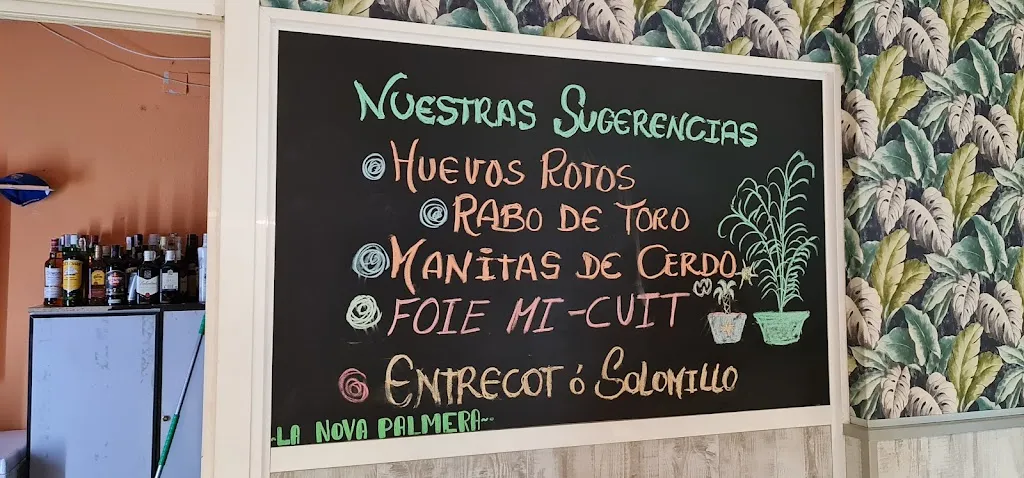 NUESTRAS SUGERENCIAS
HUEVOS ROTOS
RABO DE TORO
MANITAS DE CERDO
FOIE MI-CUIT
ENTRECOT Ó SOLOMILLO
LA NOVA PALMERA